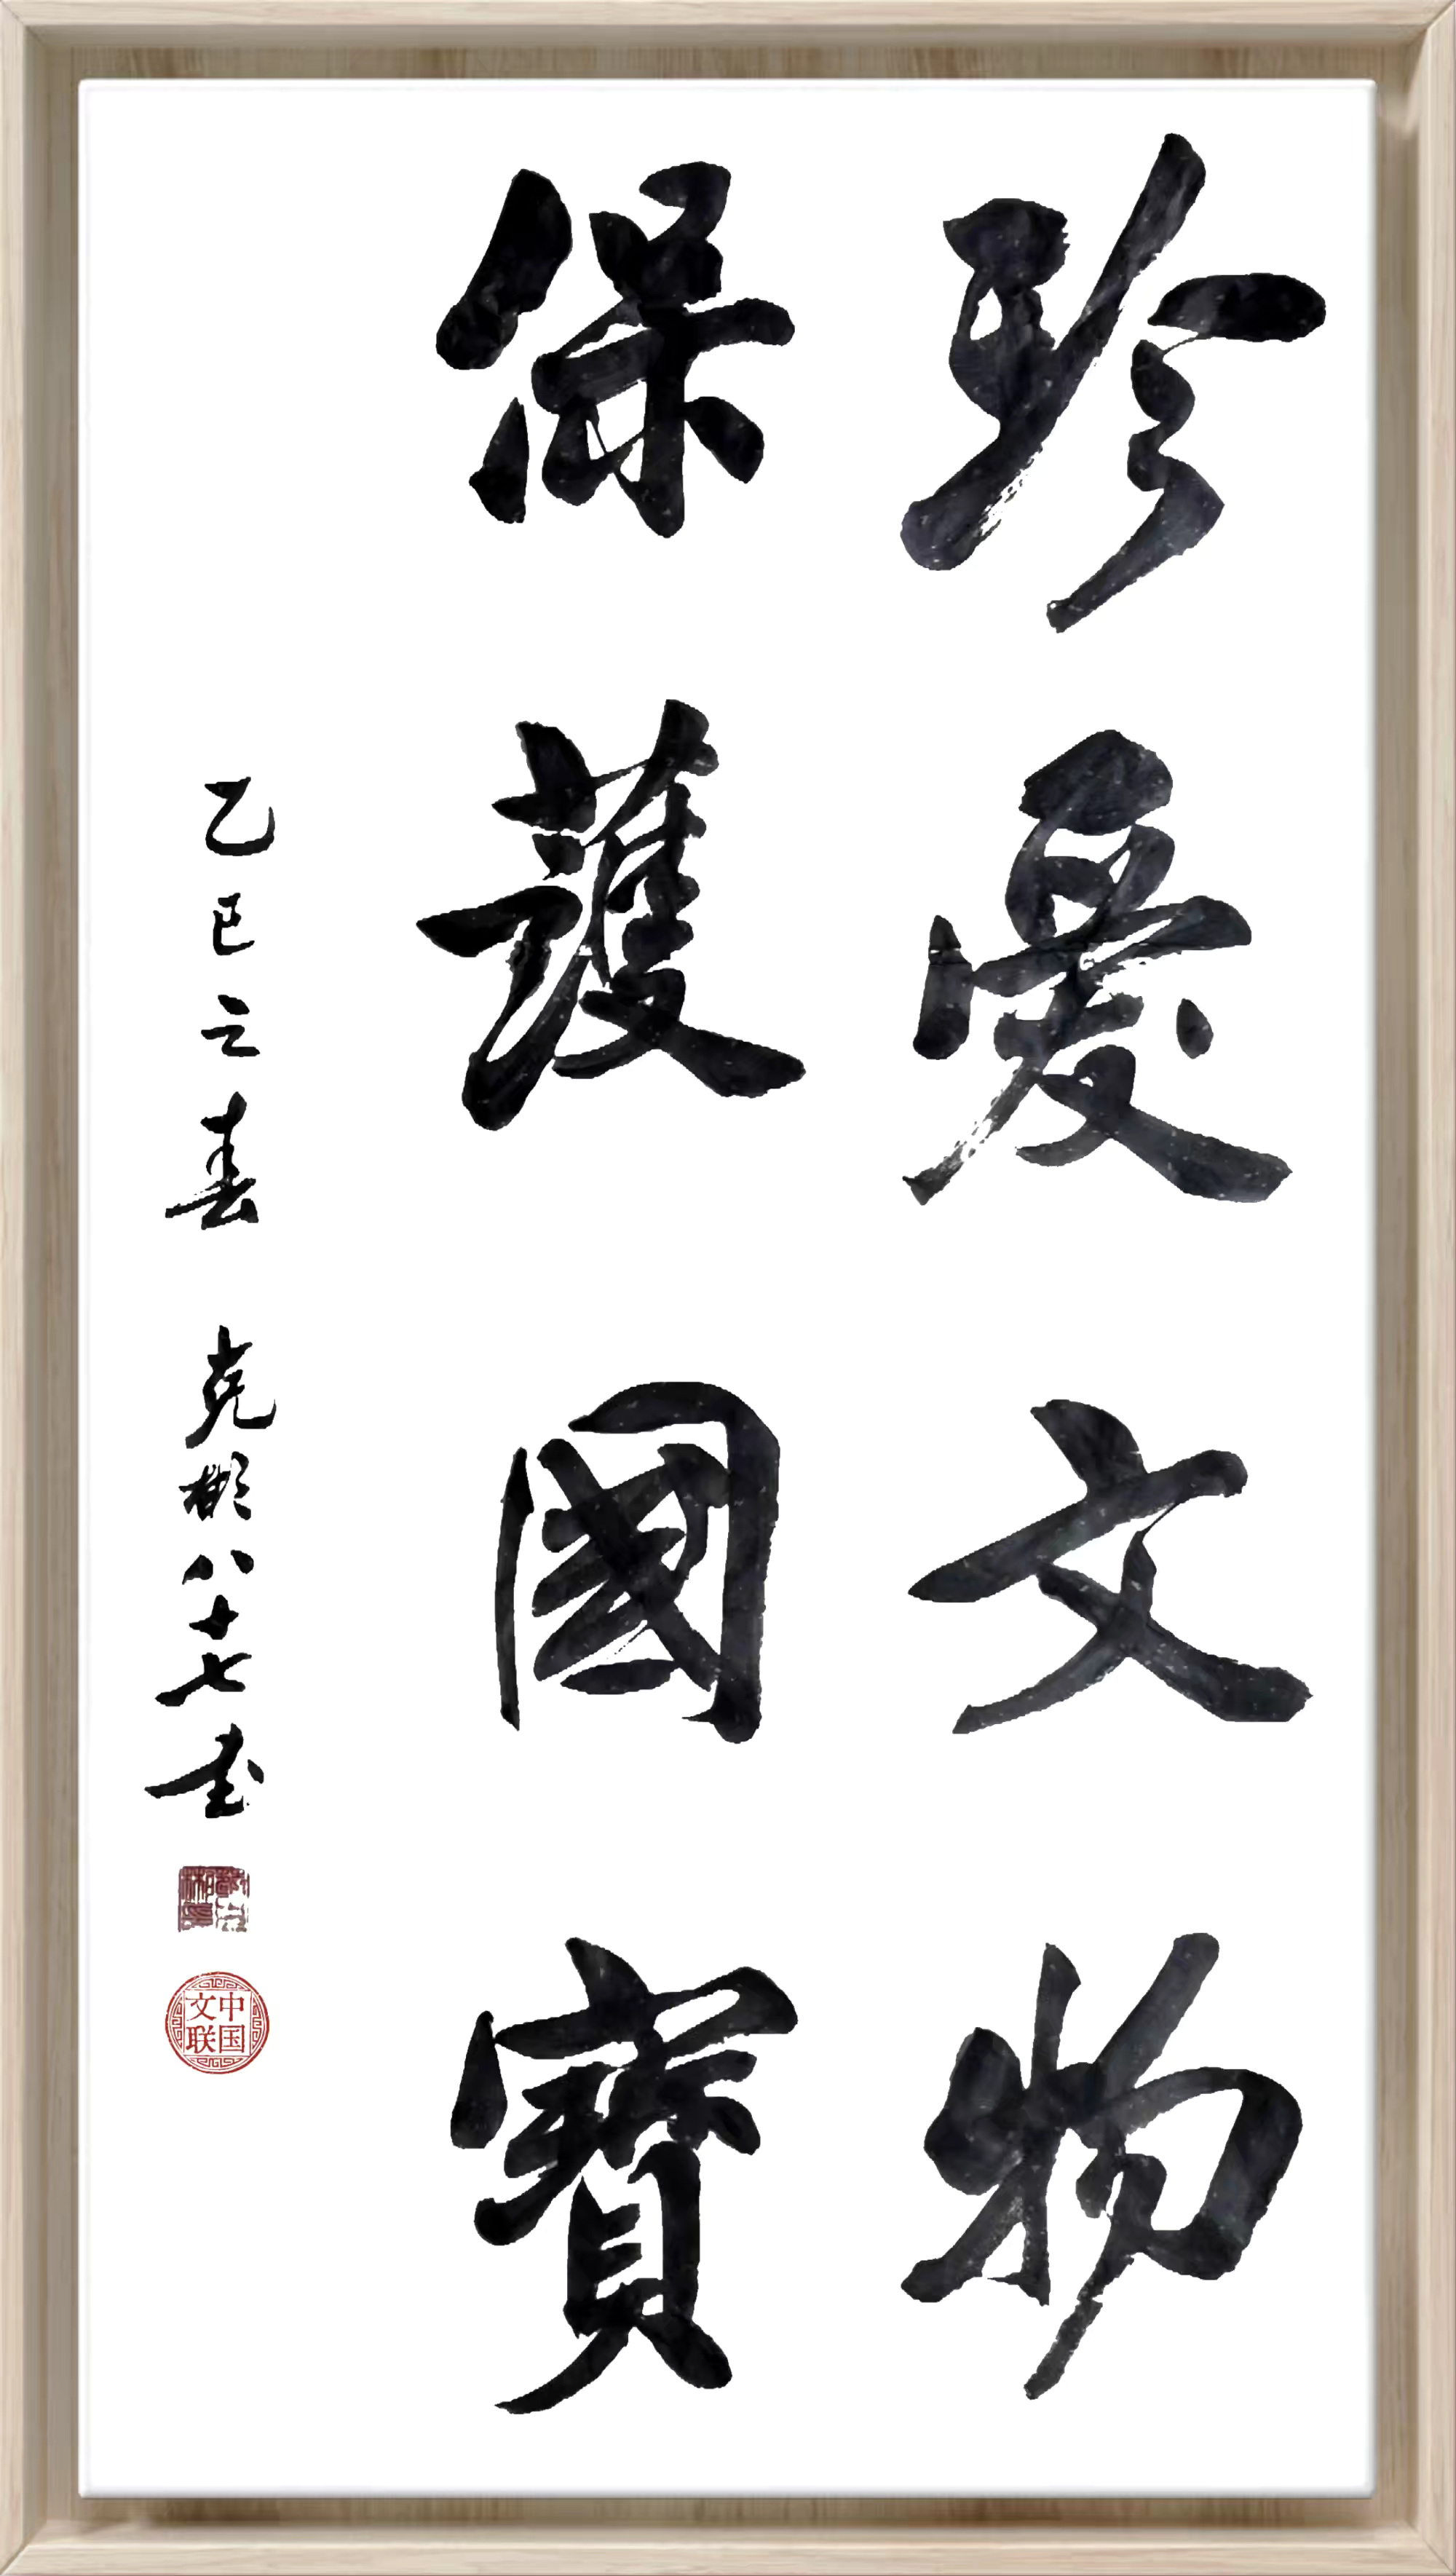 珍愛文物
保護國寶
乙巳之春 克彬八十七书
中国
文联